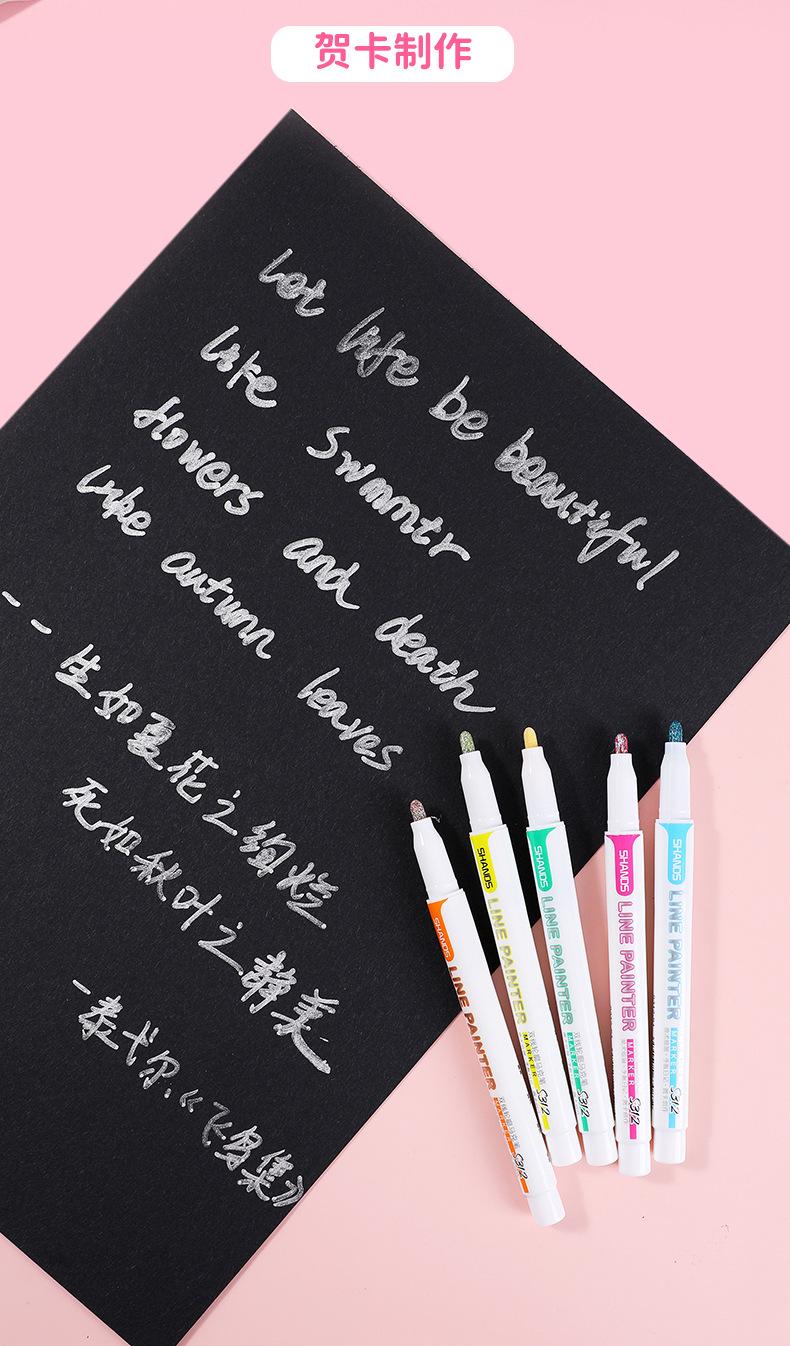 贺卡制作
Let life be beautiful
like swmmtr
flowers and death
like autumn leaves
--生如夏花之绚烂
死如秋叶之静美
-泰戈尔《飞鸟集》
SHANDS LINE PAINTER 双线轮廓马克笔 MARKER S312
SHANDS LINE PAINTER 双线轮廓马克笔 MARKER S312
SHANDS LINE PAINTER 双线轮廓马克笔 MARKER S312
SHANDS LINE PAINTER MARKER S312
SHANDS LINE PAINTER MARKER S312